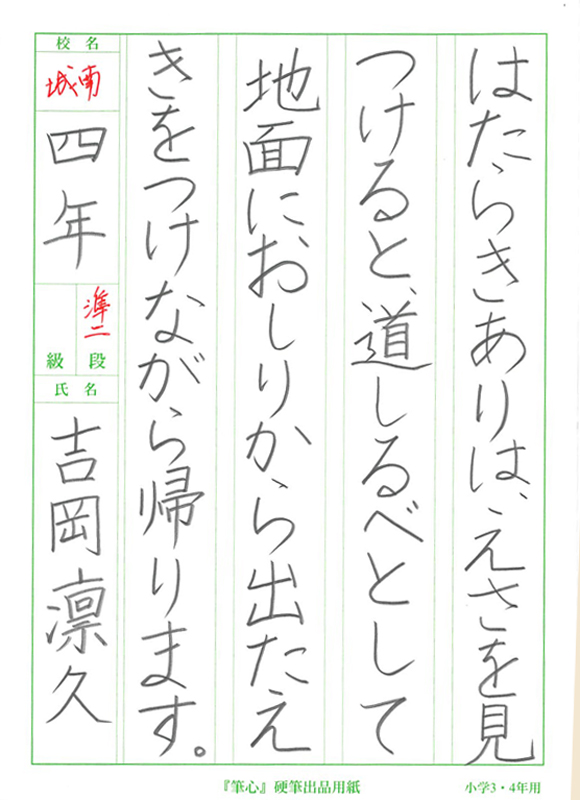 はたらきありは、えさを見
つけると、道しるべとして
地面におしりから出たえ
きをつけながら帰ります。
校名
城南
四年
準二
級段
氏名
吉岡凛久
『筆心』硬筆出品用紙
小学3・4年用